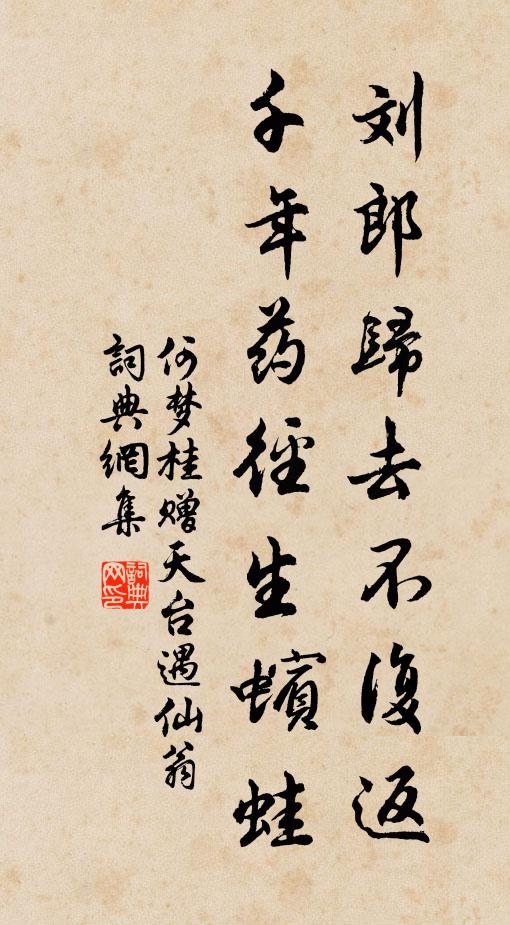 刘郎歸去不復返
千年药徑生蠙蛙
何梦桂赠天台遇仙翁
詞典網集
詞典网印